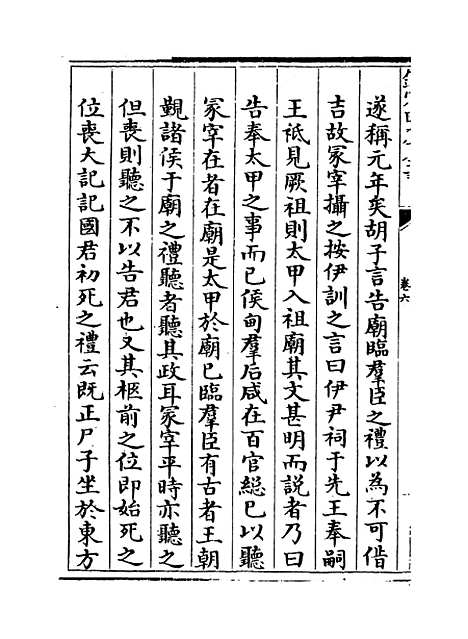 卷六
遂稱元年矣胡子言告廟臨羣臣之禮以為不可偕
吉故冡宰攝之按伊訓之言曰伊尹祠于先王奉嗣
王祗見厥祖則太甲入祖廟其文甚明而說者乃曰
告奉太甲之事而已侯甸羣后咸在百官緫已以聽
冡宰在者在廟是太甲於廟已臨羣臣有古者王朝
覲諸侯于廟之禮聽者聽其政耳冡宰平時亦聽之
但喪則聽之不以告君也又其柩前之位即始死之
位喪大記記國君初死之禮云既正尸子坐於東方